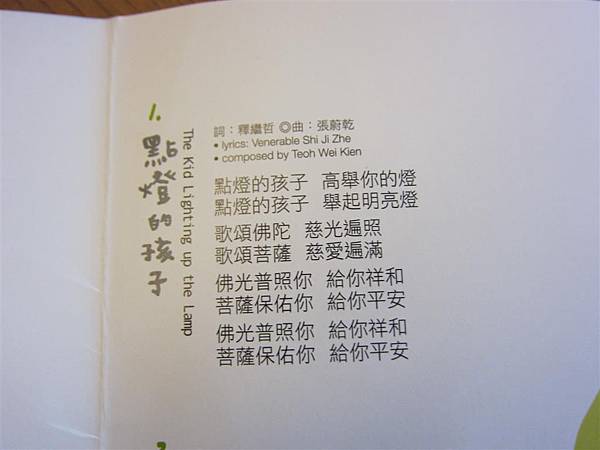 1.
點燈的孩子
The Kid Lighting up the Lamp
詞：釋繼哲 ◎曲：張蔚乾
• lyrics: Venerable Shi Ji Zhe
• composed by Teoh Wei Kien
點燈的孩子 高舉你的燈
點燈的孩子 舉起明亮燈
歌頌佛陀 慈光遍照
歌頌菩薩 慈愛遍滿
佛光普照你 給你祥和
菩薩保佑你 給你平安
佛光普照你 給你祥和
菩薩保佑你 給你平安